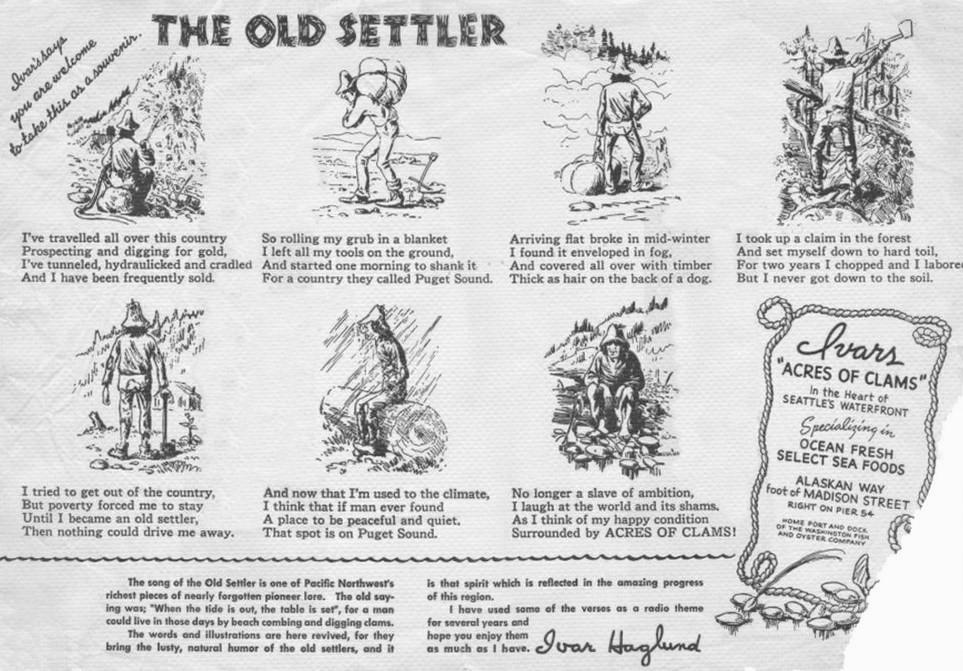 Ivar says
you are welcome
to take this as a souvenir.
THE OLD SETTLER
I've travelled all over this country
Prospecting and digging for gold,
I've tunneled, hydraulicked and cradled
And I have been frequently sold.
So rolling my grub in a blanket
I left all my tools on the ground,
And started one morning to shank it
For a country they called Puget Sound.
Arriving flat broke in mid-winter
I found it enveloped in fog,
And covered all over with timber
Thick as hair on the back of a dog.
I took up a claim in the forest
And set myself down to hard toil,
For two years I chopped and I labore
But I never got down to the soil.
I tried to get out of the country,
But poverty forced me to stay
Until I became an old settler,
Then nothing could drive me away.
And now that I'm used to the climate,
I think that if man ever found
A place to be peaceful and quiet,
That spot is on Puget Sound.
No longer a slave of ambition,
I laugh at the world and its shams.
As I think of my happy condition
Surrounded by ACRES OF CLAMS!
Ivars
"ACRES OF CLAMS"
In the Heart of
SEATTLE'S WATERFRONT
Specializing in
OCEAN FRESH
SELECT SEA FOODS
ALASKAN WAY
foot of MADISON STREET
RIGHT ON PIER 54
HOME PORT AND DOCK
OF THE WASHINGTON FISH
AND OYSTER COMPANY
The song of the Old Settler is one of Pacific Northwest's
richest pieces of nearly forgotten pioneer lore. The old say-
ing was; "When the tide is out, the table is set", for a man
could live in those days by beach combing and digging clams.
The words and illustrations are here revived, for they
bring the lusty, natural humor of the old settlers, and it
is that spirit which is reflected in the amazing progress
of this region.
I have used some of the verses as a radio theme
for several years and
hope you enjoy them
as much as I have.
Ivar Haglund